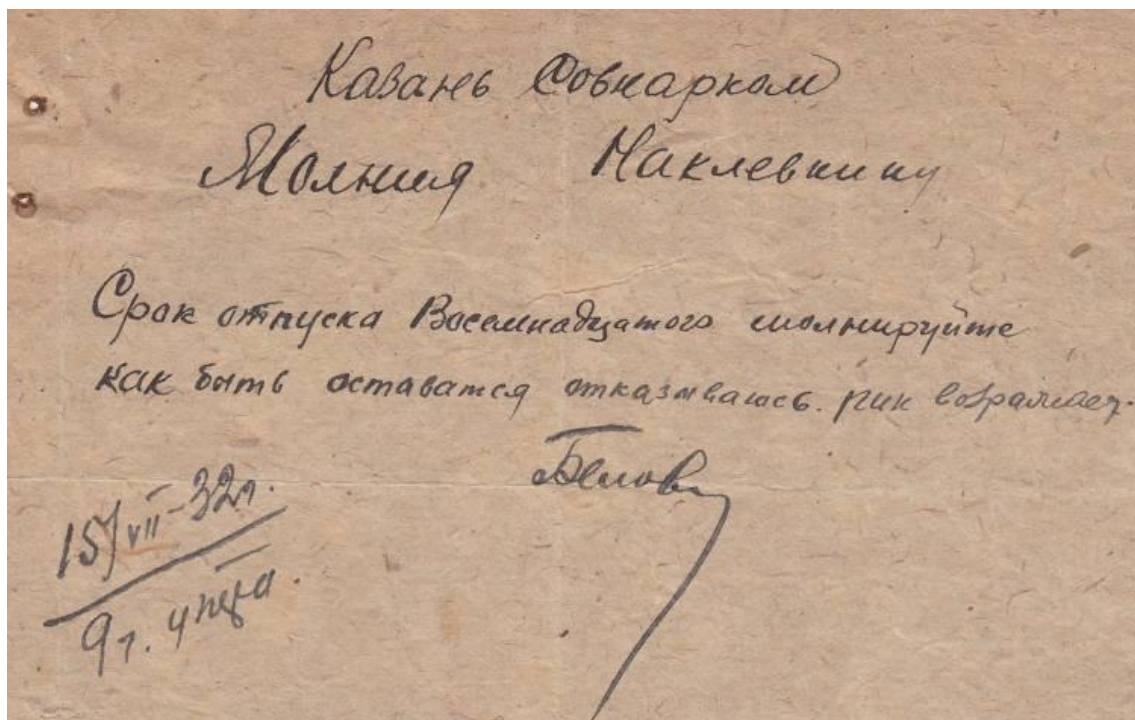 Казань Совнарком
Молния Наклевкину
Срок отпуска Восемнадцатого молнируйте
как быть оставатся отказываюсь. рик возражает.
Белов
15/VII-32г.
9 ч. утра.